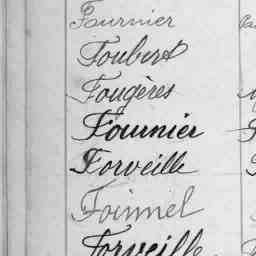 Fournier
Foubert
Fougères
Fournier
Forveille
Foinnel
Forveille